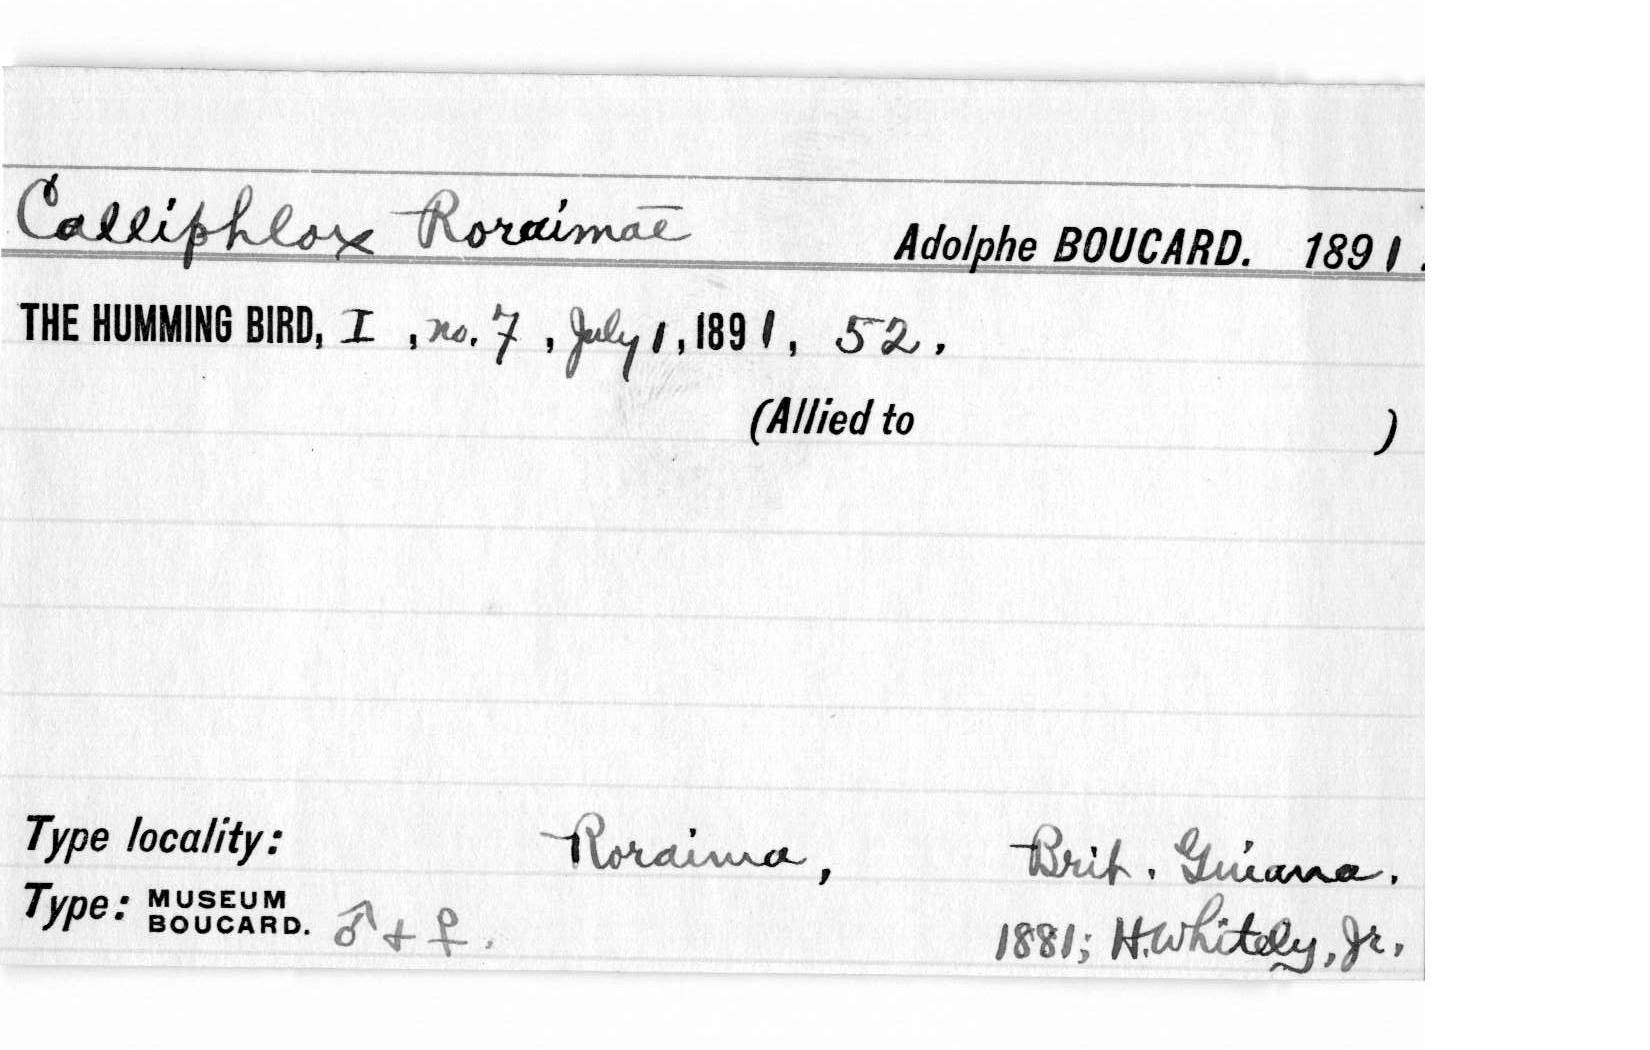 Calliphlox Roraimae Adolphe BOUCARD. 1891.
THE HUMMING BIRD, I, no. 7, July 1, 1891, 52.
(Allied to )
Type locality: Roraima, Brit. Guiana.
Type: MUSEUM BOUCARD. ♂ + ♀. 1881; H. Whitely, Jr.